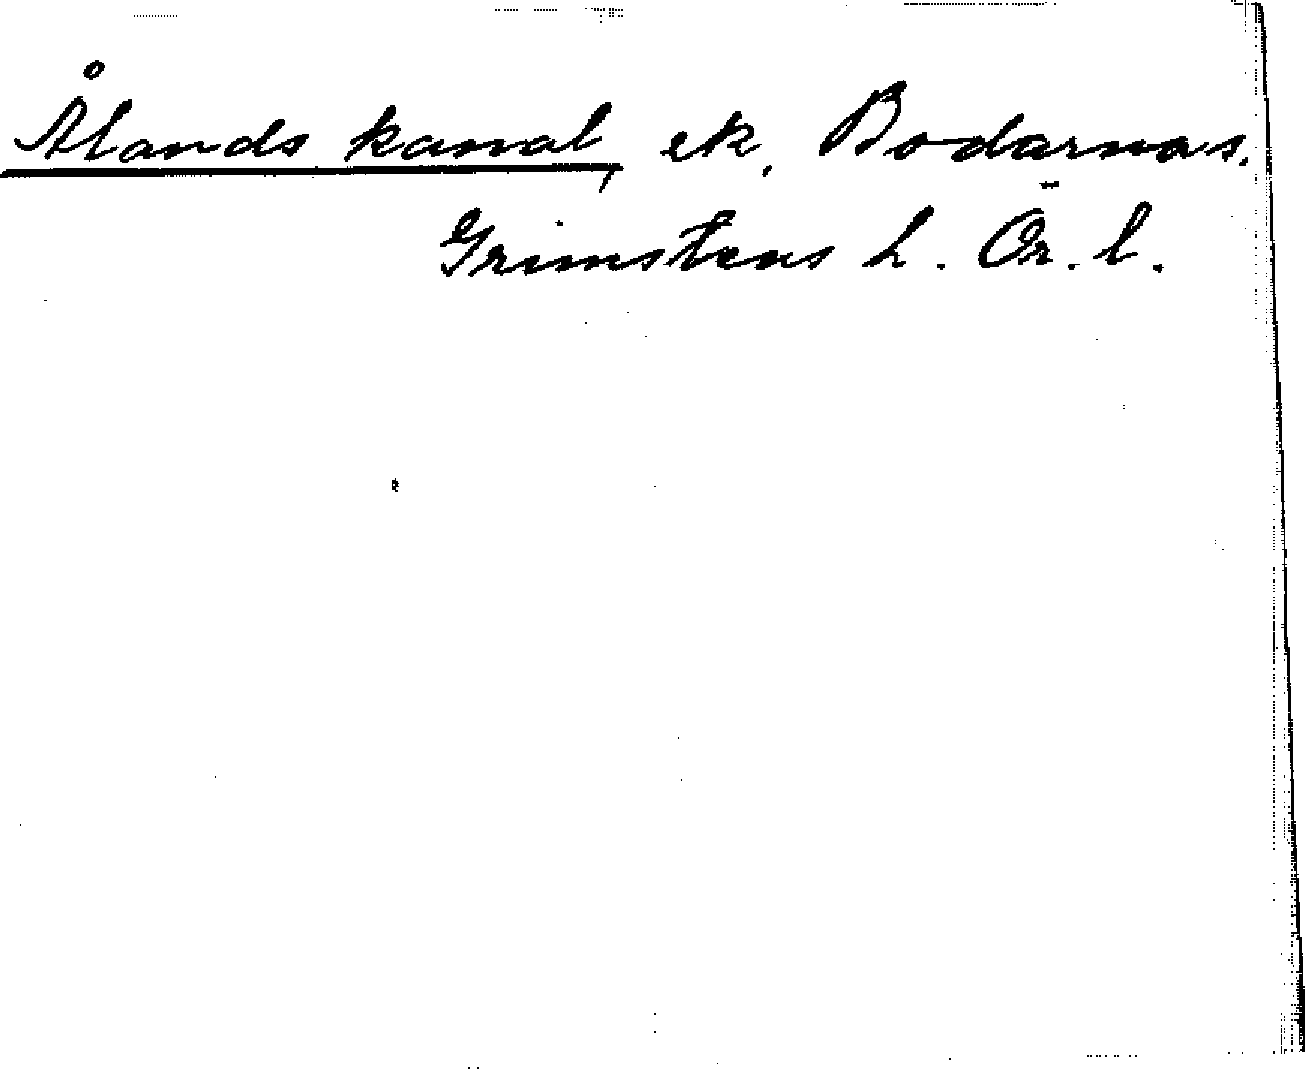 Ålands kanal, ek, Bodarnas.
Grimstens h. Ör. l.